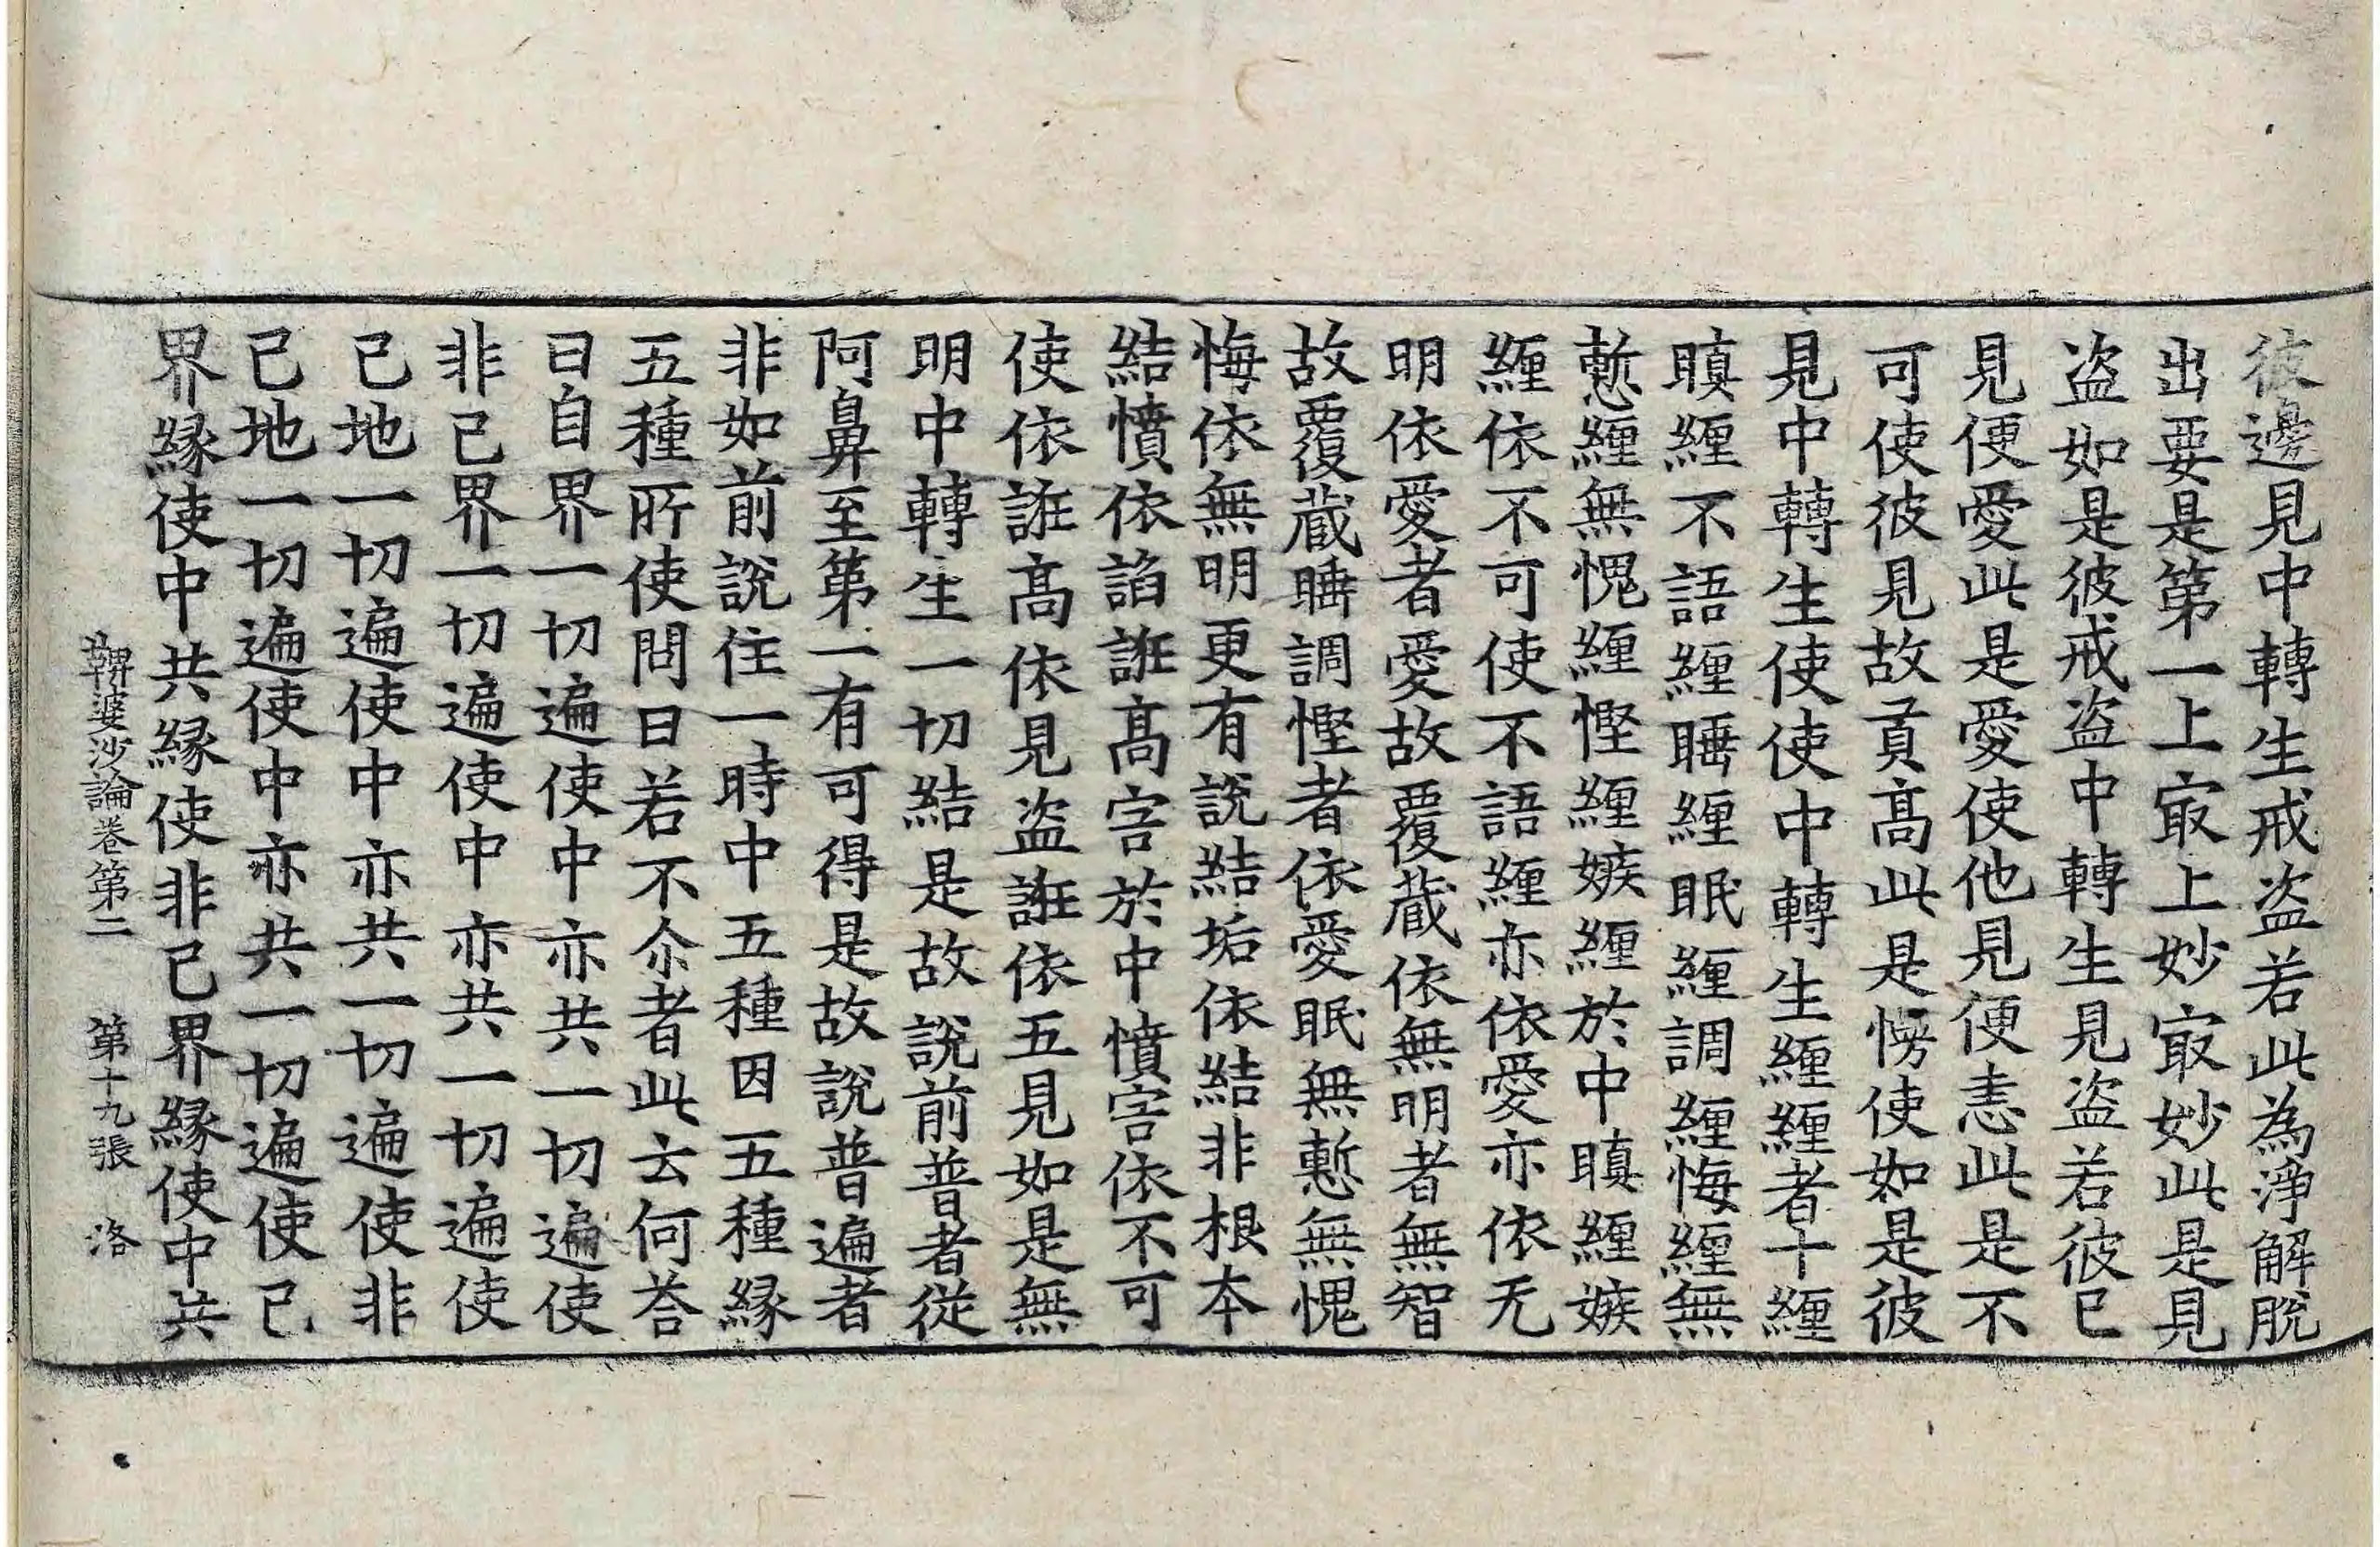 彼邊見中轉生戒盗若此為淨解脫
出要是第一上㝡上妙㝡妙此是見
盗如是彼戒盗中轉生見盗若彼已
見便愛此是愛使他見便恚此是不
可使彼見故貢髙此是憍使如是彼
見中轉生使使中轉生纒纒者十纒
瞋纒不語纒睡纒眠纒調纒悔纒無
慙纒無愧纒慳纒嫉纒於中瞋纒嫉
纒依不可使不語纒亦依愛亦依无
明依愛者愛故覆蔵依無明者無智
故覆蔵睡調慳者依愛眠無慙無愧
悔依無明更有說結垢依結非根本
結憒依諂誑髙害於中憒害依不可
使依誑髙依見盗誑依五見如是無
明中轉生一切結是故說前普者從
阿鼻至第一有可得是故說普遍者
非如前說住一時中五種因五種緣
五種所使問曰若不尒者此云何荅
曰自界一切遍使中亦共一切遍使
非己界一切遍使中亦共一切遍使
己地一切遍使中亦共一切遍使非
己地一切遍使中亦共一切遍使己
界緣使中共緣使非己界緣使中共
鞞婆沙論卷第二 第十九張 洛